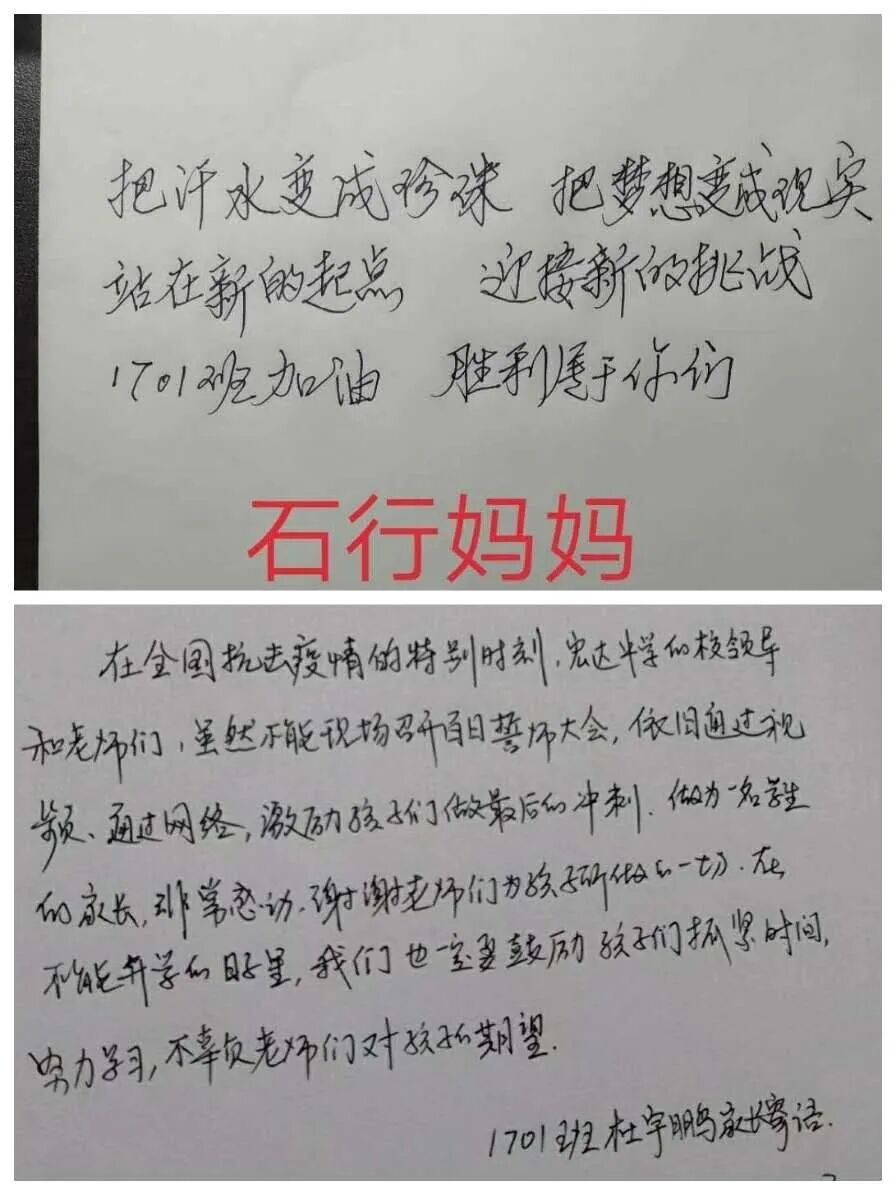 把汗水变成珍珠 把梦想变成现实
站在新的起点 迎接新的挑战
1701班加油 胜利属于你们
石行妈妈
在全国抗击疫情的特别时刻,宏达中学的校领导
和老师们,虽然不能现场召开百日誓师大会,依旧通过视
频、通过网络,激励孩子们做最后的冲刺.做为一名学生
的家长,非常感动.谢谢老师们为孩子所做的一切.在
不能开学的日子里,我们也一定要鼓励孩子们抓紧时间,
努力学习,不辜负老师们对孩子的期望.
1701班杜宇鹏家长寄语.